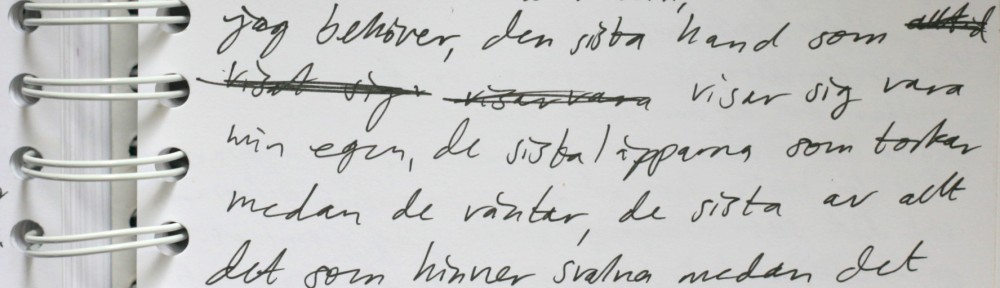 jag behöver, den sista hand som alltid
visat sig visar vara visar sig vara
min egen, de sista läpparna som torkar
medan de väntar, de sista av allt
det som hinner svalna medan det